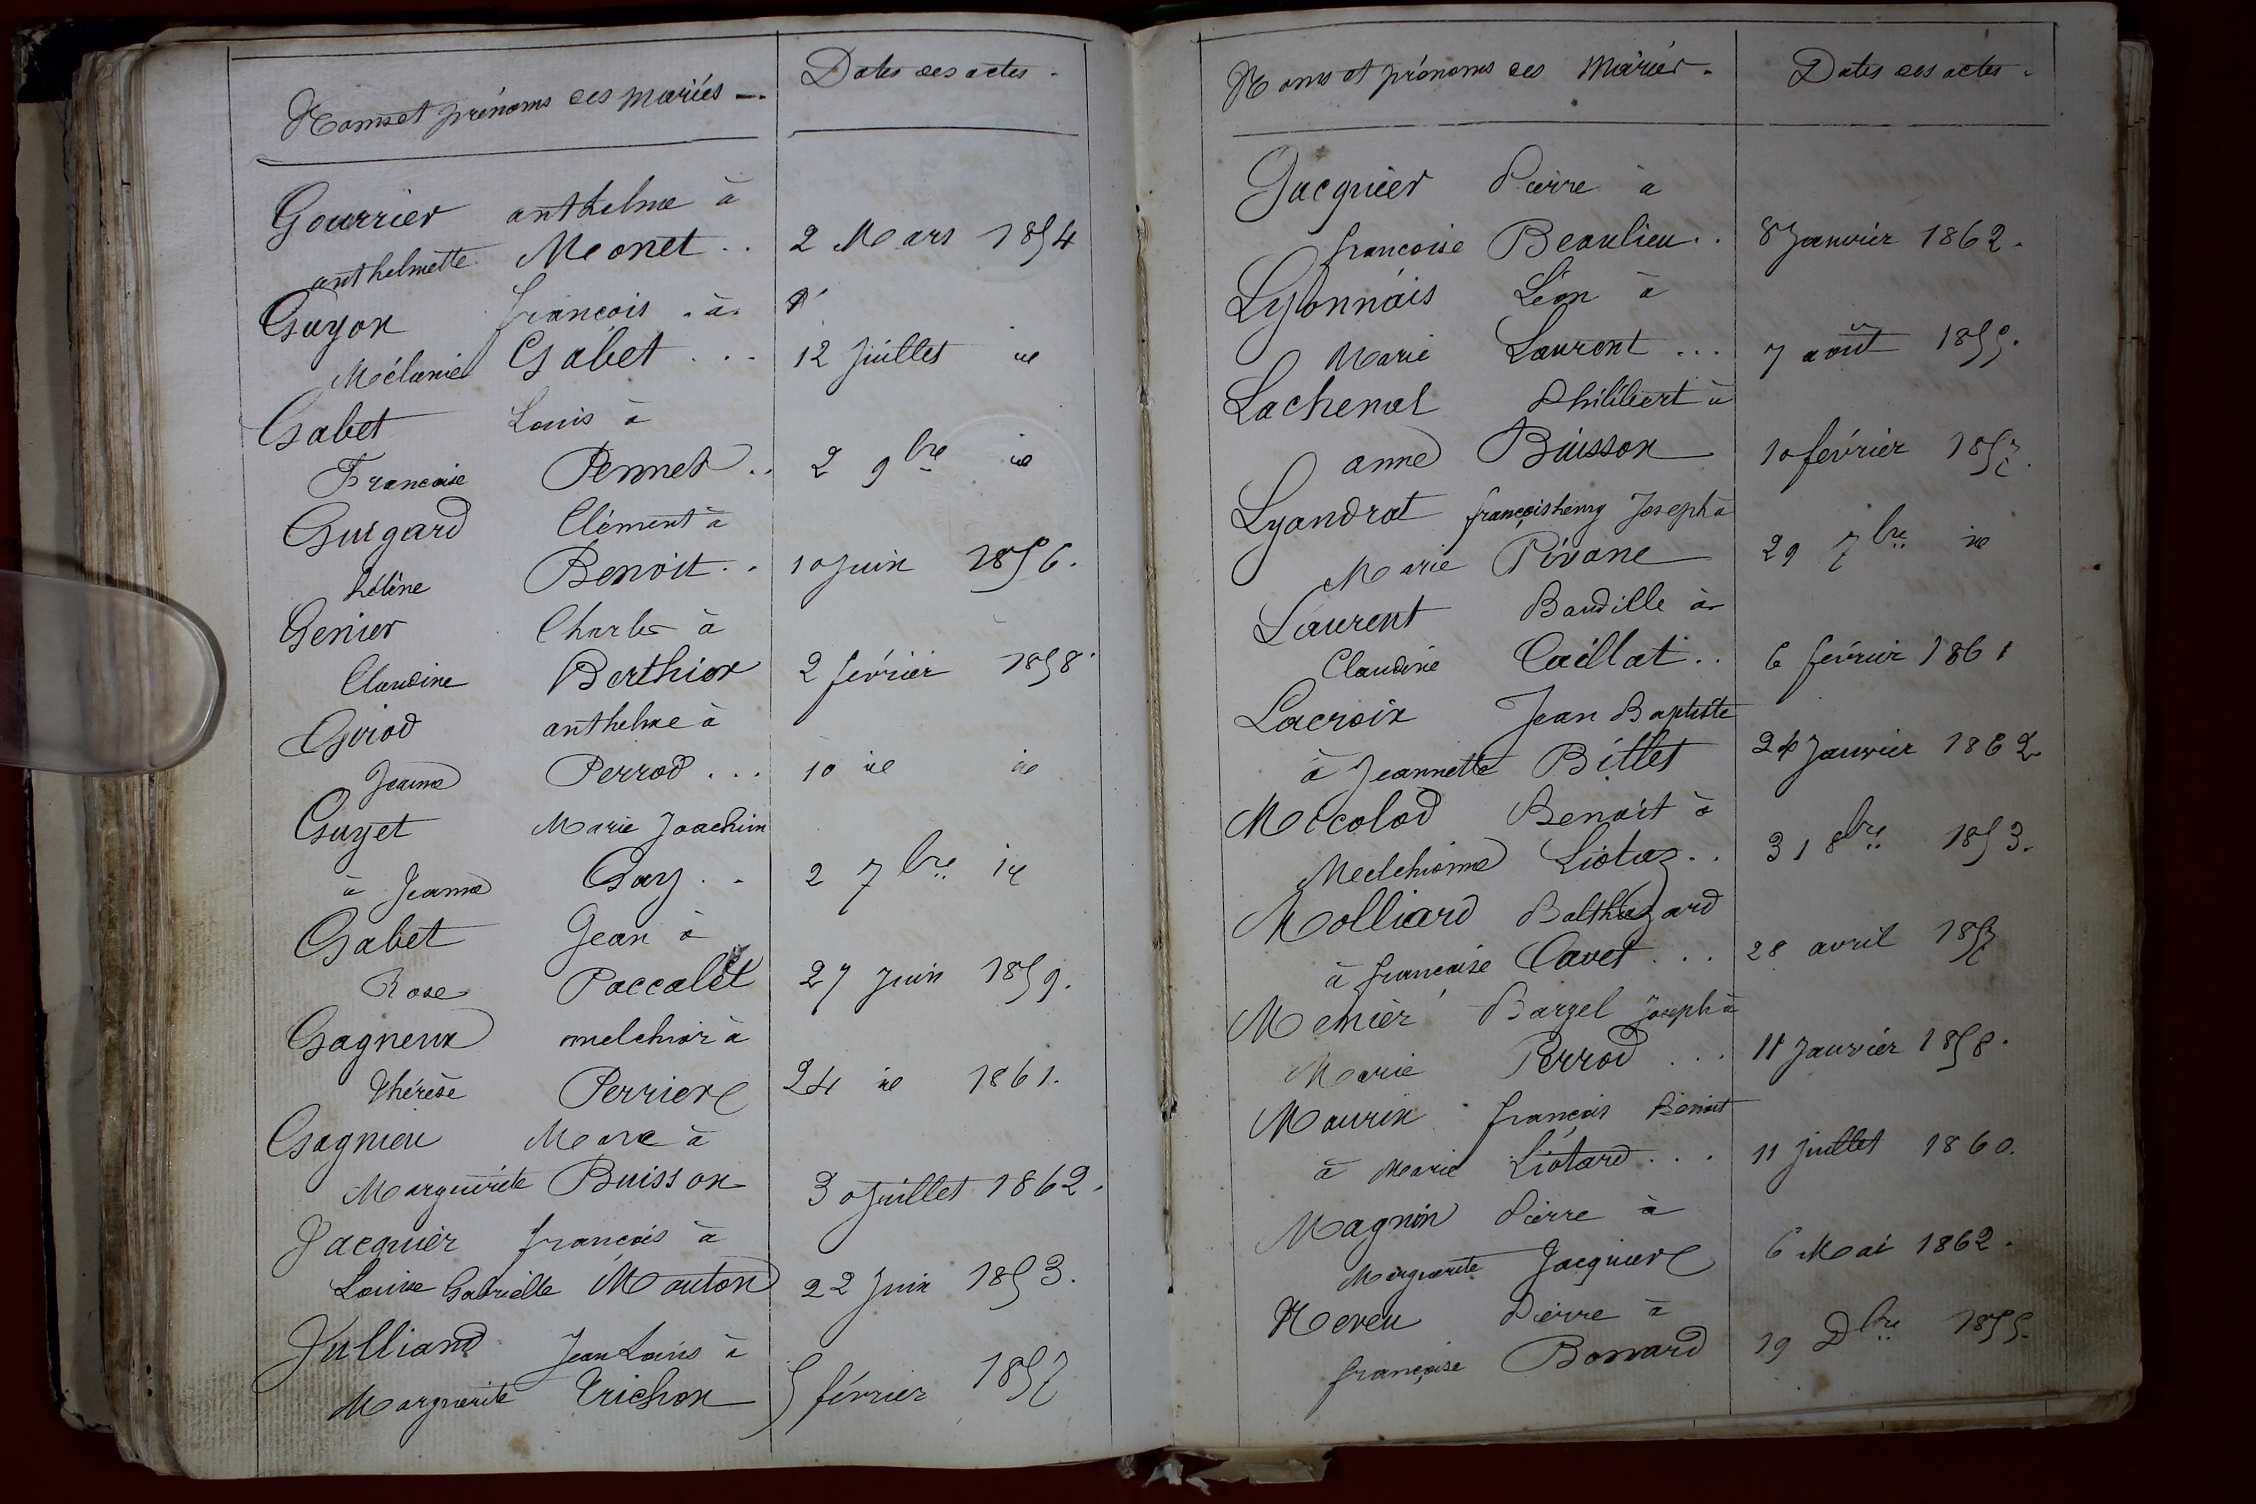 Noms et prénoms des mariés
Dates des actes
Gourrier anthelme à
anthelmette Monet .. 2 Mars 1854
Guyon francois à
Mélanie Gabet ... 12 juillet id
Gabet Louis à
Francoise Pennet .. 2 9bre id
Guigard Clément à
hélène Benoit .. 10 juin 1856.
Genier Charles à
Claudine Berthier 2 février 1858.
Girod anthelme à
Jeanne Perrod ... 10 id id
Guyet Marie Joachim
à Jeanne Gay .. 2 7bre id
Gabet Jean à
Rose Paccalet 27 juin 1859.
Gagneux melchior à
thérèse Perrier 24 id 1861.
Gagnieu Marc à
Marguerite Buisson 30 juillet 1862.
Jacquier francois à
Louise Gabrielle Mouton 22 juin 1853.
Julliand Jean Louis à
Marguerite Trichon 5 février 1857
Noms et prénoms des Mariés.
Dates des actes.
Jacquier Pierre à
francoise Beaulieu .. 8 Janvier 1862.
Lyonnais Léon à
Marie Laurent ... 7 août 1855.
Lachenal Philibert à
anne Buisson 10 février 1857.
Lyandrat françois henry Joseph à
Marie Pivane 29 7bre id
Laurent Baudille à
Claudine Caillat .. 6 février 1861
Lacroix Jean Baptiste
à Jeannette Billet 24 Janvier 1862
Micolod Benoit à
Melchionne Liotaz .. 31 8bre 1853.
Molliard Balthazard
à francoise Cavet ... 28 avril 1857
Menier Barzel Joseph à
Marie Perrod ... 11 Janvier 1858.
Maurin françois Benoit
à Marie Liotard ... 11 juillet 1860.
Magnin Pierre à
Marguerite Jacquier 6 Mai 1862.
Neveu Pierre à
françoise Bonnard 19 Dbre 1855.